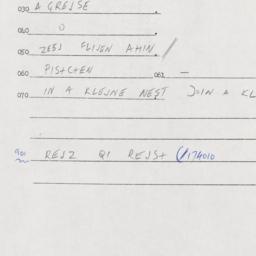 030 A GREJSE
040 O
050 ZEES FLIJEN AHIN /
060 PISTCHEN 061 —
070 IN A KLEJNE NEST JOIN A KL
901 REJZ QI REJST 174010